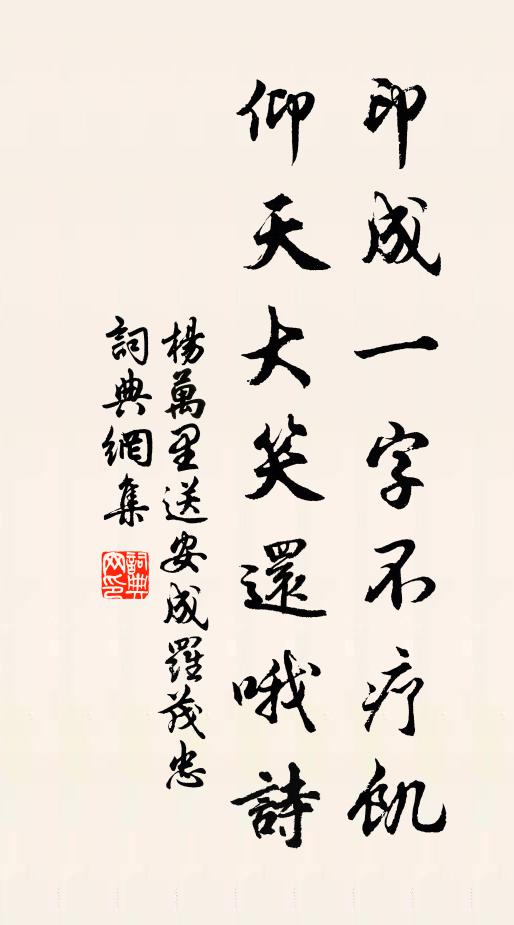 印成一字不疗飢
仰天大笑還哦詩
楊萬里送安成羅茂忠
詞典網集
詞典網印